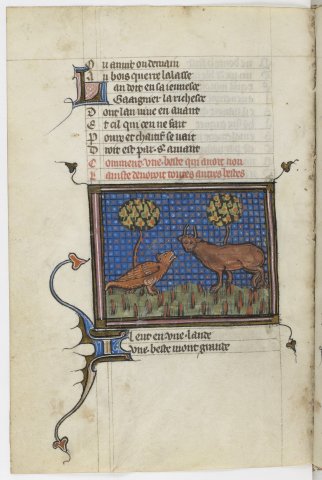 Ou anuit ou demain
Au bois querre la lasse
Lan doit en sa iennesce
Gaaignier la richesce
Dont lan viue en auant
Et cil qui cen ne fait
Poure et chaitif se uait
Doit est par s amant
Comment vne beste qui auoit non
deuoroit toutes autres bestes
Il eut en vne lande
Vne beste mont grande